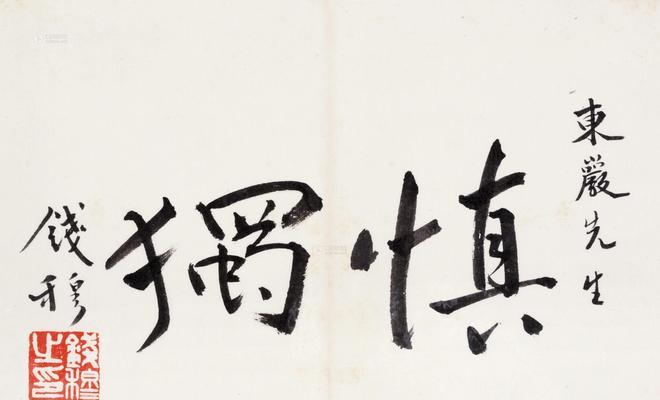 東巖先生
慎獨
錢穆
錢穆之印